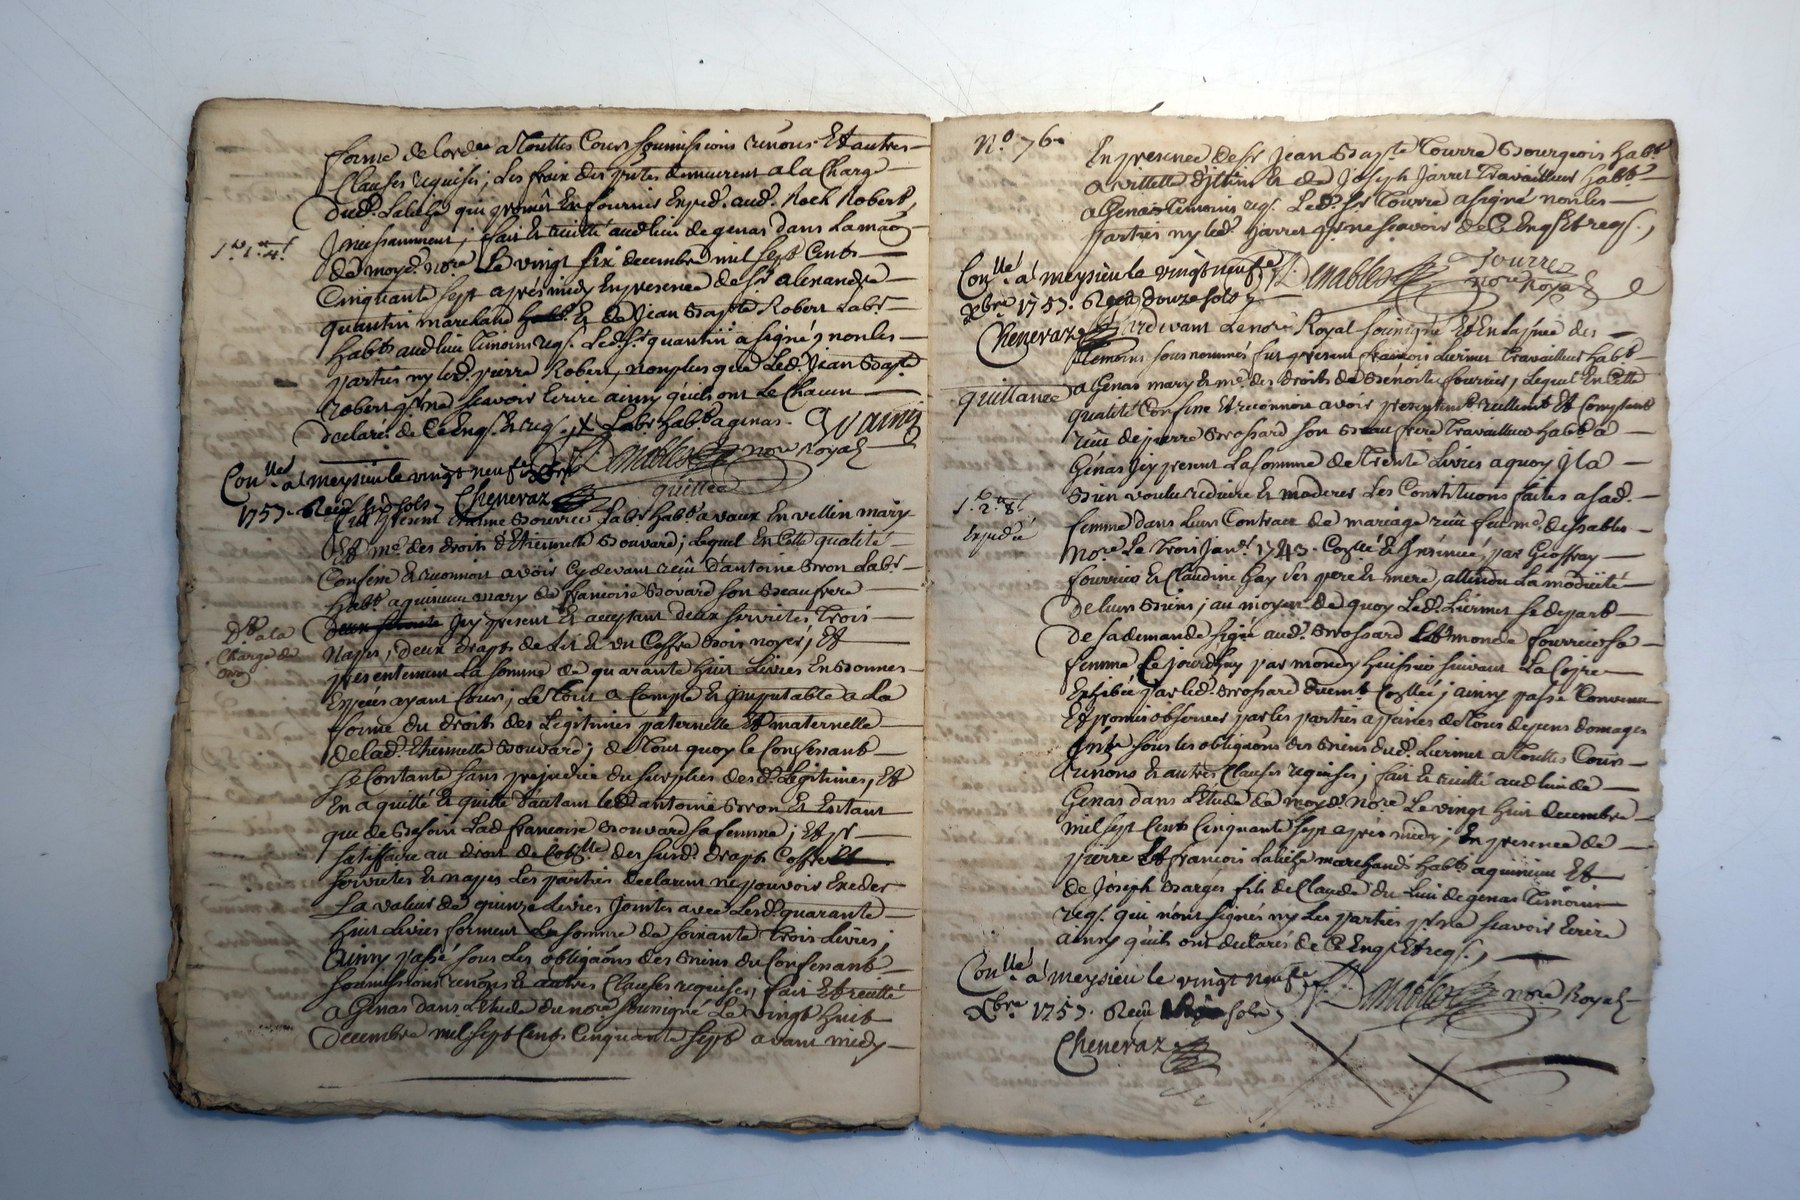 forme de lordce a Touttes Cours soumissions renons Et autres
Clauses requises; Les fraix des pntes demeurent a la Charge
dud. qui promet En fournir Expéd. aud. Roch Robert,
Incessamment; fait Et recitté aud lieu de genas dans la maõn
de moyd. nore Le vingt six decembre mil sept Cents
Cinquante sept après midy En presence de sr alexandre
quantin marchand Et de Jean Bapte Robert Labr.
habt. aud lieu temoins req. Led. Sr. quantin a signé, non les
parties ny led. pierre Robert, non plus que Led. Jean Bapte
Robert pr. ne scavoir Ecrire ainsy qu'ils ont Le Chacun
declaré de Ce Enq. Et req. X Labr habt a genas.
nore Royal
Conllé à meysieu le vingt neuf xbre
1757. Reçu six sols Cheneraz
quittce
fut present Labr habt a vaux En vellin mary
Et me. des droits d'Etiennette Bouvard; Lequel En Cette qualité
Confesse Et reconnoit avoir Cy devant reçu d'antoine Labr.
habt. mary de françoise Bouvard son Beaufrere
Icy present Et acceptant deux serviettes, Trois
Napes, deux draps de Lit Et un Coffre Bois noyer; Et
presentement La somme de quarante huit Livres En Bonnes
Espéces ayant Cours; Le Tout a Compte Et Imputable a La
forme du droits des Legitimes paternelle Et maternelle
de lad. Etiennette Bouvard; de Tout quoy le Confessant
se Contante sans prejudice du surplus desd. Legitimes, Et
En a quitté Et quitte d'autant led antoine Et Entant
que de Besoin Lad françoise Bouvard sa femme; Et pr
satisffaire au droit de Conlle des susd. draps Coffre
serviettes Et napes Les parties declarent ne pouvoir Exeder
La valeur de quinze Livres Jointes avec Lesd. quarante
huit Livres forment La somme de soixante Trois Livres;
ainsy passé sous Les obligaõns des Biens du Confessant
soumissions renons Et autres Clauses requises, fait Et recitté
a Genas dans L'Etude du nore soussigné Le vingt huit
decembre mil sept Cents Cinquante sept avant midy
Dt. a la
Charge de
No. 76
En presence de sr Jean Bapte Tourre Bourgeois habt.
a villette d'anthon Et de Joseph Jarret Travailleur habt.
a Genas Temoins req. Led. Sr Tourre a signé non les
parties ny led. Jarret pr. ne scavoir de Ce Enq. Et req.
Tourre
nore Royal
Conllé à meysieu le vingt neuf
xbre 1757. Reçu douze sols
Cheneraz
Pardevant Le nore Royal soussigné Et En La pnce des
Temoins sous nommés fut present françois Liermet Travailleur habt.
quittance
a Genas mary Et me. des droits de Benoite fourrier, Lequel En Cette
qualité Confesse Et reconnoit avoir presentemt. reellemt. Et Comptant
reçu de pierre Brossard son Beau frere Travailleur habt. a
Genas Icy present La somme de Trente Livres a quoy Il a
Bien voulu reduire Et moderer Les Constitutions faites a sad.
Expedié
femme dans Leur Contract de mariage reçu feu me. desables
Nore Le Trois Janr. 1743. Conllé Et Insinué, par Gioffray
fourrier Et Claudine hay ses pere Et mere, attendu La modicité
de leurs Biens; au moyen de quoy Led. Liermet se depart
de sa demande signé aud. Brossard fourrier sa
femme Ce Jourdhuy par mondy huissier suivant La Copie
Exhibée par led. Brossard duemt. Conllée; ainsy passé Convenu
Et promis observer par les parties a peines de Tous depens domages
Sous les obligaõns des Biens dud. Liermet a Touttes Cours
renons Et autres Clauses requises; fait Et recitté aud lieu de
Genas dans L'Etude de moyd. Nore Le vingt huit decembre
mil sept Cents Cinquante sept après midy; En presence de
pierre Et françois marchands habts. Et
de Joseph Barges fils de Claude du Lieu de genas Temoins
req. qui n'ont signés ny Les parties pr. ne scavoir Ecrire
ainsy qu'ils ont declarés de Ce Enq. Et req.
Conllé à meysieu le vingt neuf
xbre 1757. Reçu sols
nore Royal
Cheneraz